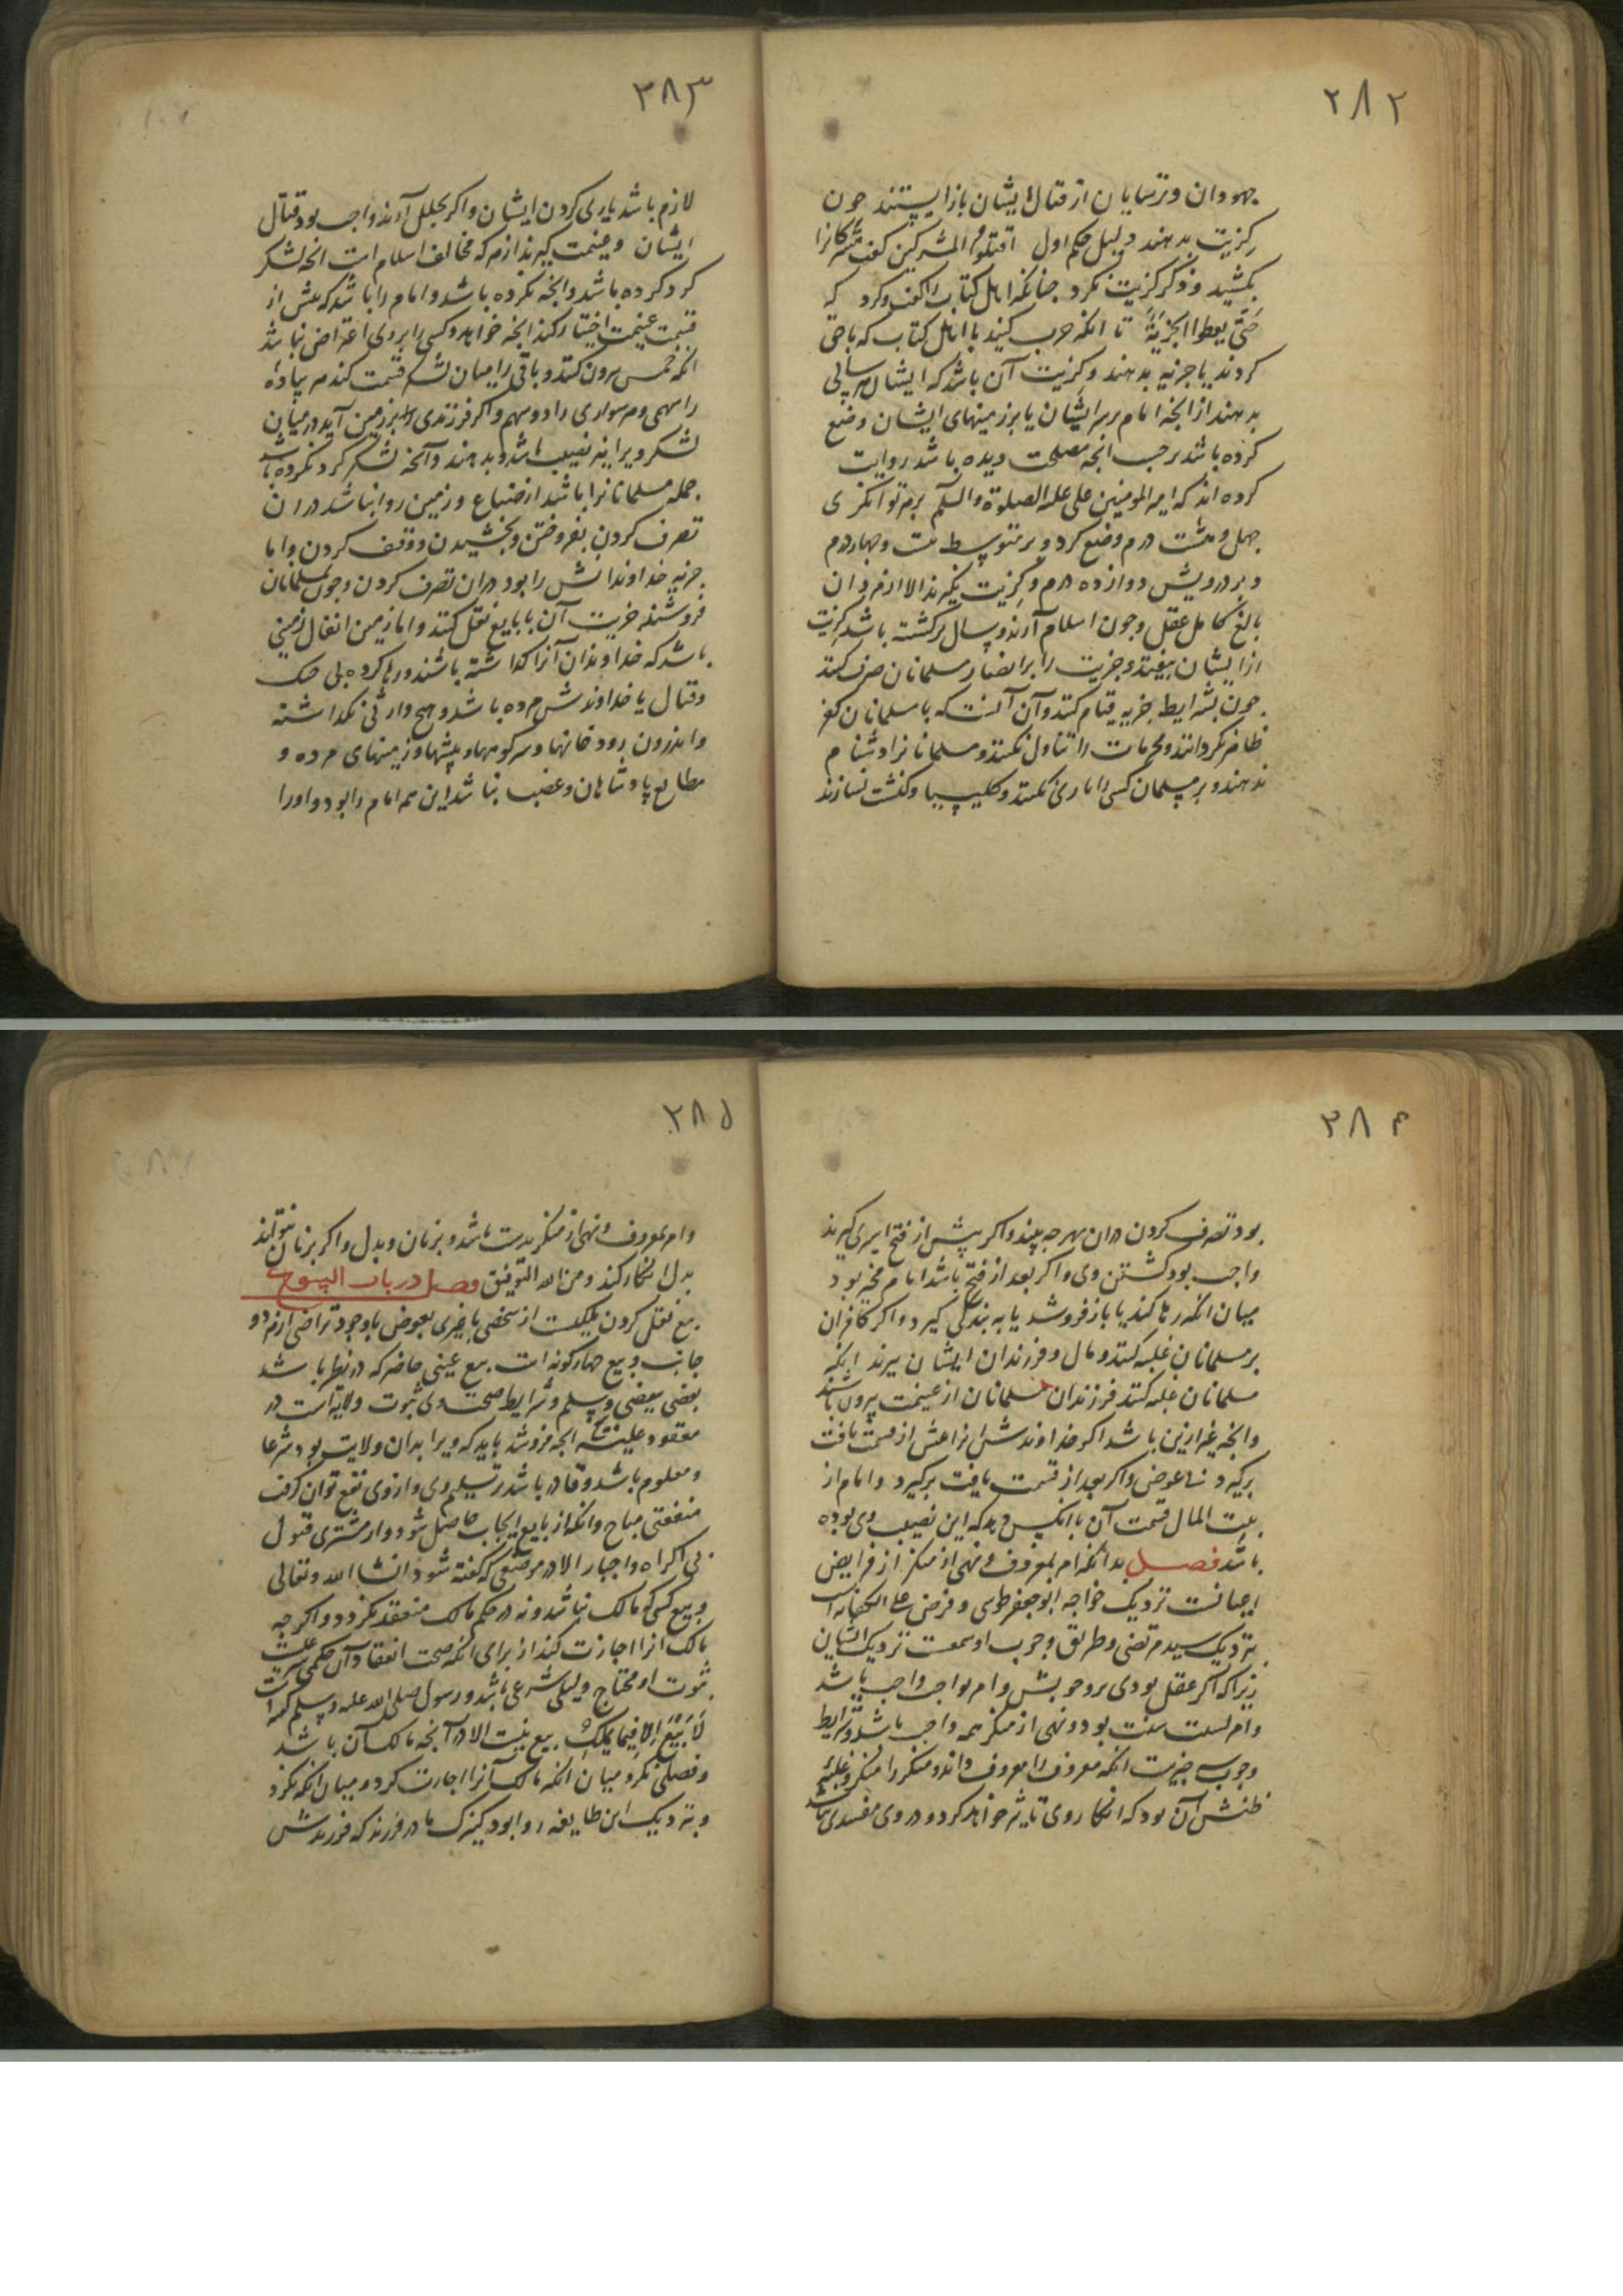 ۲۸۲
جهودان و ترسایان از قتال ایشان باز ایستند چون
گزیت بدهند دلیل حکم اول اقتلوا المشرکین گفت مشرکانرا
بکشید و ذکر گزیت نکرد چنانکه اهل کتاب را گفت و کرد که
حتی یعطوا الجزیة تا انکه حرب کنید با اهل کتاب که یاغی
کردند یا جزیه بدهند و گزیت آن باشد که ایشان هر سالی
بدهند از انچه امام بر سر ایشان یا بر زمینهای ایشان وضع
کرده باشد بر حسب انچه مصلحت دیده باشد روایت
کرده اند که امیر المومنین علی علیه الصلوة والسلم بر توانکری
چهل و هشت درم وضع کرد و بر متوسط بیست و چهار درم
و بر درویش دوازده درم و گزیت نکیرند الا از مردان
بالغ کامل عقل و چون اسلام آرند و سال برکشته باشد گزیت
از ایشان بیفتد و جزیت را بر انصار مسلمانان صرف کنند
چون بشرایط جزیه قیام کنند و آن آنست که با مسلمانان کفر
ظاهر نکردانند و محرمات را تناول نکنند و مسلمانانرا دشنام
ندهند و بر مسلمان کسی را یاری نکنند و کلیسیا و کنشت نسازند
۲۸۳
لازم باشد یاری کردن ایشان و اکر بخلل آرند واجب بود قتال
ایشان و غنیمت گیرند از هر که مخالف اسلام است انچه لشکر
کرد کرده باشد و انچه نکرده باشد و امام را باشد که پیش از
قسمت غنیمت اختیار کند انچه خواهد و کسی را بر وی اعتراض نباشد
انکه خمس بیرون کند و باقی را میان لشکر قسمت کند هر پیاده
را سهمی و هر سواری را دو سهم و اکر فرزندی بر زمین آید در میان
لشکر ویرا نیز نصیب باشد و بدهند و آنچه لشکر کرد نکرده باشد
جمله مسلمانانرا باشد از ضیاع و زمین روا نباشد در ان
تصرف کردن بفروختن و بخشیدن و وقف کردن و اما
جزیه خداوندانش را بود در ان تصرف کردن و چون بمسلمانان
فروشند جزیت آن با بایع نقل کند و اما زمین انفال زمینی
باشد که خداوندان آنرا گذاشته باشند و رها کرده بی جنک
و قتال یا خداوندش مرده باشد و هیچ وارثی نگذاشته
و اندرون رودخانها و سر کوهها و بیشها و زمینهای مرده و
مطایع پادشاهان و غصب نباشد این همه امام را بود و او را
۲۸۴
بود تصرف کردن در ان بهر چه بیند و اکر پیش از فتح اسیری گیرند
واجب بود کشتن وی و اکر بعد از فتح باشد امام مخیر بود
میان انکه رها کند یا باز فروشد یا به بندگی گیرد و اکر کافران
بر مسلمانان غلبه کنند و مال و فرزندان ایشان ببرند انکه
مسلمانان غلبه کنند فرزندان مسلمانان از غنیمت بیرون باشند
و انچه غیر ازین باشد اکر خداوندش انرا پیش از قسمت یافت
برگیرد بی عوض و اکر بعد از قسمت یافت برگیرد و امام از
بیت المال قیمت آن با انکس دهد که این نصیب وی بوده
باشد فصل بدانکه امر بمعروف و نهی از منکر از فرایض
اعیانست نزدیک خواجه ابو جعفر طوسی و فرض علی الکفایه است
بنزدیک سید مرتضی و طریق وجوب او سمعست نزدیک ایشان
زیرا که اکر عقل بودی بر وجوبش و امر بواجب واجب باشد
و امر بسنت سنت بود و نهی از منکر همه واجب باشد و شرایط
وجوب سه چیزست انکه معروف را معروف داند و منکر را منکر و غلبه
ظنش آن بود که انکار وی تاثیر خواهد کرد و در وی مفسدی نباشد
۲۸۵
و امر بمعروف و نهی از منکر بدست باشد و بزبان و بدل و اکر بزبان نتواند
بدل انکار کند و من الله التوفیق فصل در باب البیوع
بیع نقل کردن ملکیت از شخصی با غیری بعوض با وجود تراضی از هر دو
جانب و بیع چهارگونه است بیع عینی حاضر که در نظر باشد
بعضی ببعضی و سلم و شرایط صحت وی ثبوت ولایه است در
معقود علیه انچه فروشد باید که ویرا بدان ولایت بود شرعا
و معلوم باشد و قادر باشد بر تسلیم وی و از وی نفع توان گرفت
منفعتی مباح و انکه از بایع ایجاب حاصل شود و از مشتری قبول
بی اکراه و اجبار الا در موضعی که گفته شود انشا الله وتعالی
و بیع کسی که مالک نباشد و نه در حکم مالک منعقد نکردد و اکر چه
مالک انرا اجازت کند از برای انکه صحت انعقاد آن حکمی شرعیست
ثبوت او محتاج دلیلی شرعی باشد و رسول صلی الله علیه و سلم گفت
لا بیع الا فیما یملک بیع نیست الا در آنچه مالک آن باشد
و فصلی نکرد میان انکه مالک آنرا اجازت کرد و میان انکه نکرد
و بنزدیک این طایفه روا بود کنیزک مادر فرزند که فرزندش